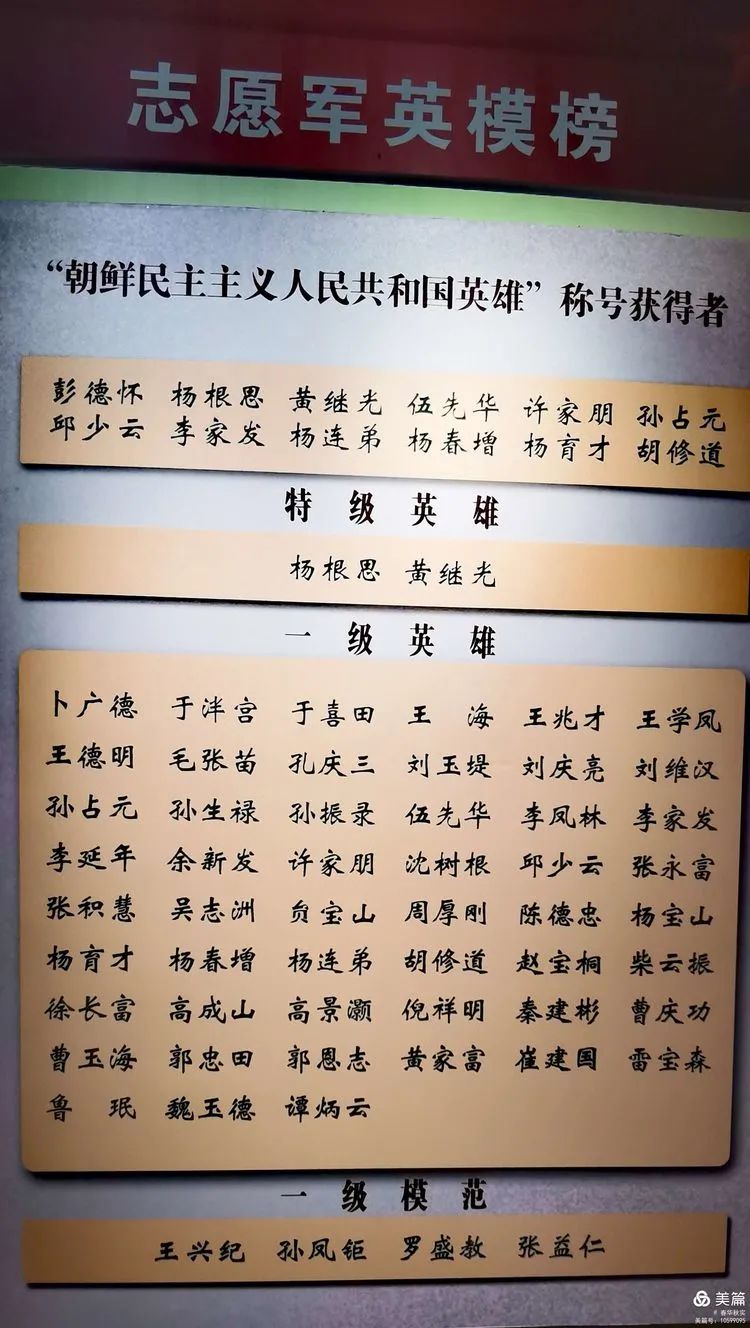 志愿军英模榜
“朝鲜民主主义人民共和国英雄”称号获得者
彭德怀 杨根思 黄继光 伍先华 许家朋 孙占元
邱少云 李家发 杨连弟 杨春增 杨育才 胡修道
特级英雄
杨根思 黄继光
一级英雄
卜广德 于泮宫 于喜田 王海 王兆才 王学凤
王德明 毛张苗 孔庆三 刘玉堤 刘庆亮 刘维汉
孙占元 孙生禄 孙振录 伍先华 李凤林 李家发
李延年 余新发 许家朋 沈树根 邱少云 张永富
张积慧 吴志洲 贠宝山 周厚刚 陈德忠 杨宝山
杨育才 杨春增 杨连弟 胡修道 赵宝桐 柴云振
徐长富 高成山 高景灏 倪祥明 秦建彬 曹庆功
曹玉海 郭忠田 郭恩志 黄家富 崔建国 雷宝森
鲁珉 魏玉德 谭炳云
一级模范
王兴纪 孙凤钜 罗盛教 张益仁
美篇
# 春华秋实
美篇号：10599095